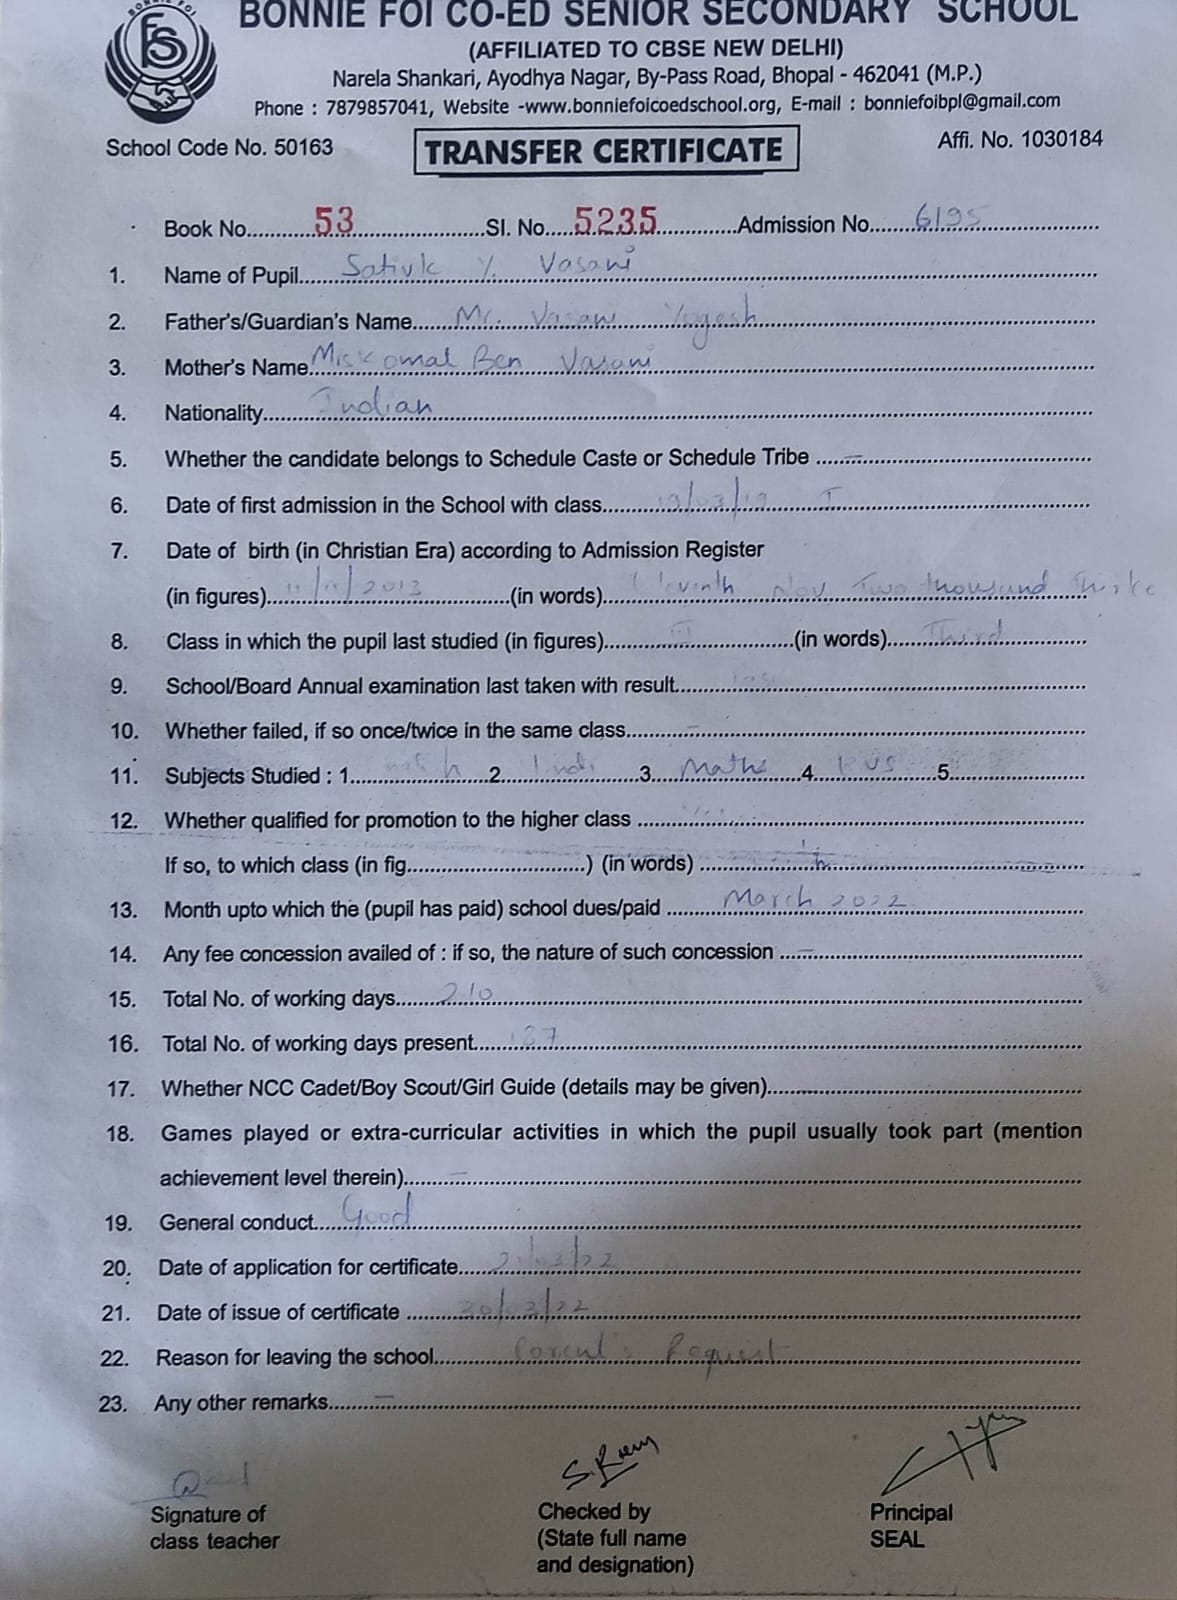 BONNIE FOI
BONNIE FOI CO-ED SENIOR SECONDARY SCHOOL
(AFFILIATED TO CBSE NEW DELHI)
Narela Shankari, Ayodhya Nagar, By-Pass Road, Bhopal - 462041 (M.P.)
Phone : 7879857041, Website -www.bonniefoicoedschool.org, E-mail : bonniefoibpl@gmail.com
School Code No. 50163 TRANSFER CERTIFICATE Affi. No. 1030184
Book No. 53 Sl. No. 5235 Admission No. 6195
1. Name of Pupil Sativk Y. Vasani
2. Father's/Guardian's Name Mr. Vasani Yogesh
3. Mother's Name Komal Ben Vasani
4. Nationality Indian
5. Whether the candidate belongs to Schedule Caste or Schedule Tribe –
6. Date of first admission in the School with class 19/03/19 I
7. Date of birth (in Christian Era) according to Admission Register
(in figures) 11/11/2013 (in words) Eleventh Nov Two thousand
8. Class in which the pupil last studied (in figures) III (in words) Third
9. School/Board Annual examination last taken with result
10. Whether failed, if so once/twice in the same class –
11. Subjects Studied : 1. 2. 3. Maths 4. 5.
12. Whether qualified for promotion to the higher class
If so, to which class (in fig. ) (in words)
13. Month upto which the (pupil has paid) school dues/paid March 2022
14. Any fee concession availed of : if so, the nature of such concession –
15. Total No. of working days 210
16. Total No. of working days present 187
17. Whether NCC Cadet/Boy Scout/Girl Guide (details may be given)
18. Games played or extra-curricular activities in which the pupil usually took part (mention
achievement level therein) –
19. General conduct Good
20. Date of application for certificate
21. Date of issue of certificate 30/03/22
22. Reason for leaving the school Parent's Request
23. Any other remarks –
Signature of Checked by Principal
class teacher (State full name SEAL
and designation)